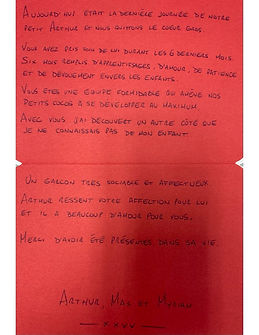 AUJOURD'HUI ÉTAIT LA DERNIÈRE JOURNÉE DE NOTRE
PETIT ARTHUR ET NOUS QUITTONS LE COEUR GROS.
VOUS AVEZ PRIS SOIN DE LUI DURANT LES 6 DERNIERS MOIS.
SIX MOIS REMPLIS D'APPRENTISSAGES, D'AMOUR, DE PATIENCE
ET DE DÉVOUEMENT ENVERS LES ENFANTS.
VOUS ÊTES UNE ÉQUIPE FORMIDABLE QUI AMÈNE NOS
PETITS COCOS À SE DÉVELOPPER AU MAXIMUM.
AVEC VOUS J'AI DÉCOUVERT UN AUTRE CÔTÉ QUE
JE NE CONNAISSAIS PAS DE MON ENFANT.
UN GARÇON TRÈS SOCIABLE ET AFFECTUEUX
ARTHUR RESSENT VOTRE AFFECTION POUR LUI
ET IL A BEAUCOUP D'AMOUR POUR VOUS.
MERCI D'AVOIR ÉTÉ PRÉSENTES DANS SA VIE.
ARTHUR, MAX ET MYRIAM